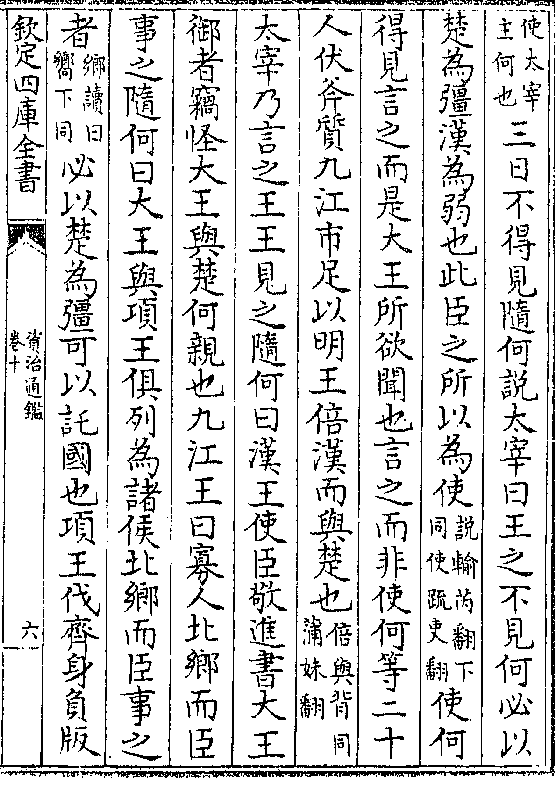 使太宰主何也三日不得見隨何說太宰曰王之不見何必以
楚為彊漢為弱也此臣之所以為使說輸芮翻下同使疏吏翻使何
得見言之而是大王所欲聞也言之而非使何等二十
人伏斧質九江市足以明王倍漢而與楚也倍與背同蒲妹翻
太宰乃言之王王見之隨何曰漢王使臣敬進書大王
御者竊怪大王與楚何親也九江王曰寡人北鄉而臣
事之隨何曰大王與項王俱列為諸侯北鄉而臣事之
者鄉讀曰嚮下同必以楚為彊可以託國也項王伐齊身負版
欽定四庫全書
資治通鑑
卷十
六